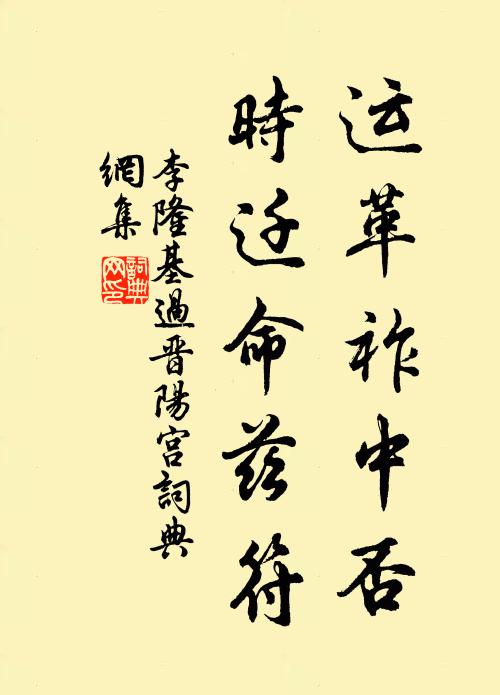 运革祚中否
時迁命茲符
李隆基過晋陽宫詞典
網集
詞典
网印